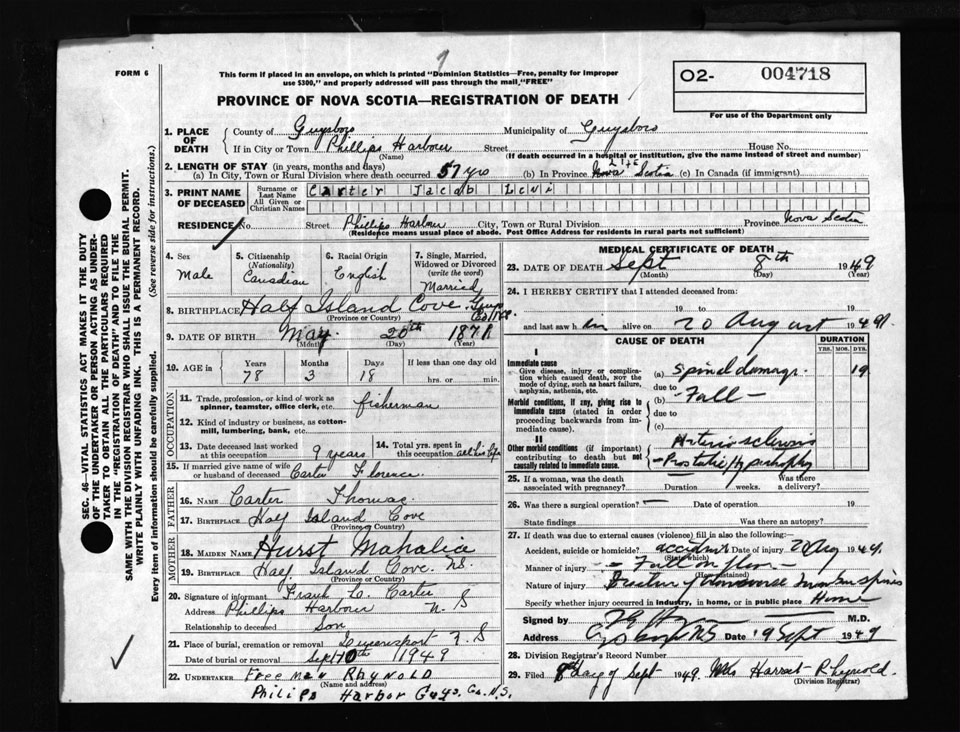 FORM 6
1
This form if placed in an envelope, on which is printed "Dominion Statistics—Free, penalty for improper
use $300," and properly addressed will pass through the mail, "FREE"
O2- 004718
For use of the Department only
PROVINCE OF NOVA SCOTIA—REGISTRATION OF DEATH
1. PLACE OF DEATH
County of Guysboro Municipality of Guysboro
If in City or Town Phillips Harbour Street House No.
(Name) (If death occurred in a hospital or institution, give the name instead of street and number)
2. LENGTH OF STAY (in years, months and days)
(a) In City, Town or Rural Division where death occurred 57 yrs (b) In Province Life Nova Scotia (c) In Canada (if immigrant)
3. PRINT NAME OF DECEASED
Surname or Last Name Carter Jacob Levi
All Given or Christian Names
RESIDENCE No. Street Phillips Harbour City, Town or Rural Division Province Nova Scotia
(Residence means usual place of abode. Post Office Address for residents in rural parts not sufficient)
4. Sex
Male
5. Citizenship
(Nationality)
Canadian
6. Racial Origin
English
7. Single, Married,
Widowed or Divorced
(write the word)
Married
8. BIRTHPLACE Half Island Cove
(Province or Country)
9. DATE OF BIRTH May 20th 1871
(Month) (Day) (Year)
10. AGE in Years Months Days If less than one day old
78 3 18 hrs. or min.
OCCUPATION
11. Trade, profession or kind of work as
spinner, teamster, office clerk, etc. fisherman
12. Kind of industry or business, as cotton-
mill, lumbering, bank, etc.
13. Date deceased last worked
at this occupation 9 years
14. Total yrs. spent in
this occupation all his life
15. If married give name of wife
or husband of deceased Carter Florence
FATHER
16. NAME Carter Thomas
17. BIRTHPLACE Half Island Cove
(Province or Country)
MOTHER
18. MAIDEN NAME Hurst Mahalia
19. BIRTHPLACE Half Island Cove. NS.
(Province or Country)
20. Signature of informant Frank L. Carter
Address Phillips Harbour N. S
Relationship to deceased Son
21. Place of burial, cremation or removal Queensport N. S
Date of burial or removal Sept 10th 1949
22. UNDERTAKER Freeman Rhynold
(Name and address)
Philips Harbor Guys. Co. N.S.
MEDICAL CERTIFICATE OF DEATH
23. DATE OF DEATH Sept 8th 1949
(Month) (Day) (Year)
24. I HEREBY CERTIFY that I attended deceased from:
19 to 19
and last saw him alive on 20 August 1949
CAUSE OF DEATH
DURATION
YRS. MOS. DYS.
I
Immediate cause
Give disease, injury or complica-
tion which caused death, not the
mode of dying, such as heart failure,
asphyxia, asthenia, etc.
(a) Spinal damage 19
due to
Morbid conditions, if any, giving rise to
immediate cause (stated in order
proceeding backwards from im-
mediate cause).
(b) - Fall -
due to
(c)
II
Other morbid conditions (if important)
contributing to death but not
causally related to immediate cause.
Arteriosclerosis
- Prostatic Hypertrophy
25. If a woman, was the death
associated with pregnancy? Duration weeks. Was there
a delivery?
26. Was there a surgical operation? — Date of operation 19
State findings Was there an autopsy?
27. If death was due to external causes (violence) fill in also the following:—
Accident, suicide or homicide? accident Date of injury 20 Aug 1949.
(State which)
Manner of injury - - Fall on floor -
(How sustained)
Nature of injury Fracture transverse lumbar spines
Specify whether injury occurred in industry, in home, or in public place Home
Signed by M.D.
Address Date 9 Sept 1949
28. Division Registrar's Record Number
29. Filed 8 day of Sept 1949. Mrs Harriet Rhynold
(Division Registrar)
SEC. 46—VITAL STATISTICS ACT MAKES IT THE DUTY
OF THE UNDERTAKER OR PERSON ACTING AS UNDER-
TAKER TO OBTAIN ALL THE PARTICULARS REQUIRED
IN THE "REGISTRATION OF DEATH" AND TO FILE THE
SAME WITH THE DIVISION REGISTRAR WHO SHALL ISSUE THE BURIAL PERMIT.
WRITE PLAINLY WITH UNFADING INK. THIS IS A PERMANENT RECORD.
Every item of information should be carefully supplied. (See reverse side for instructions.)